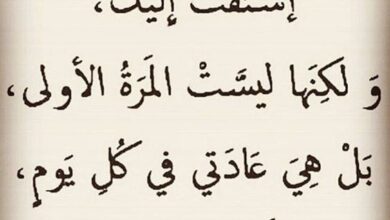 إشتقت إليك،
وَ لَكِنَها ليسَّتْ المَرَةُ الأولى،
بَلْ هِيَ عَادَتي في كُلِ يَومٍ،